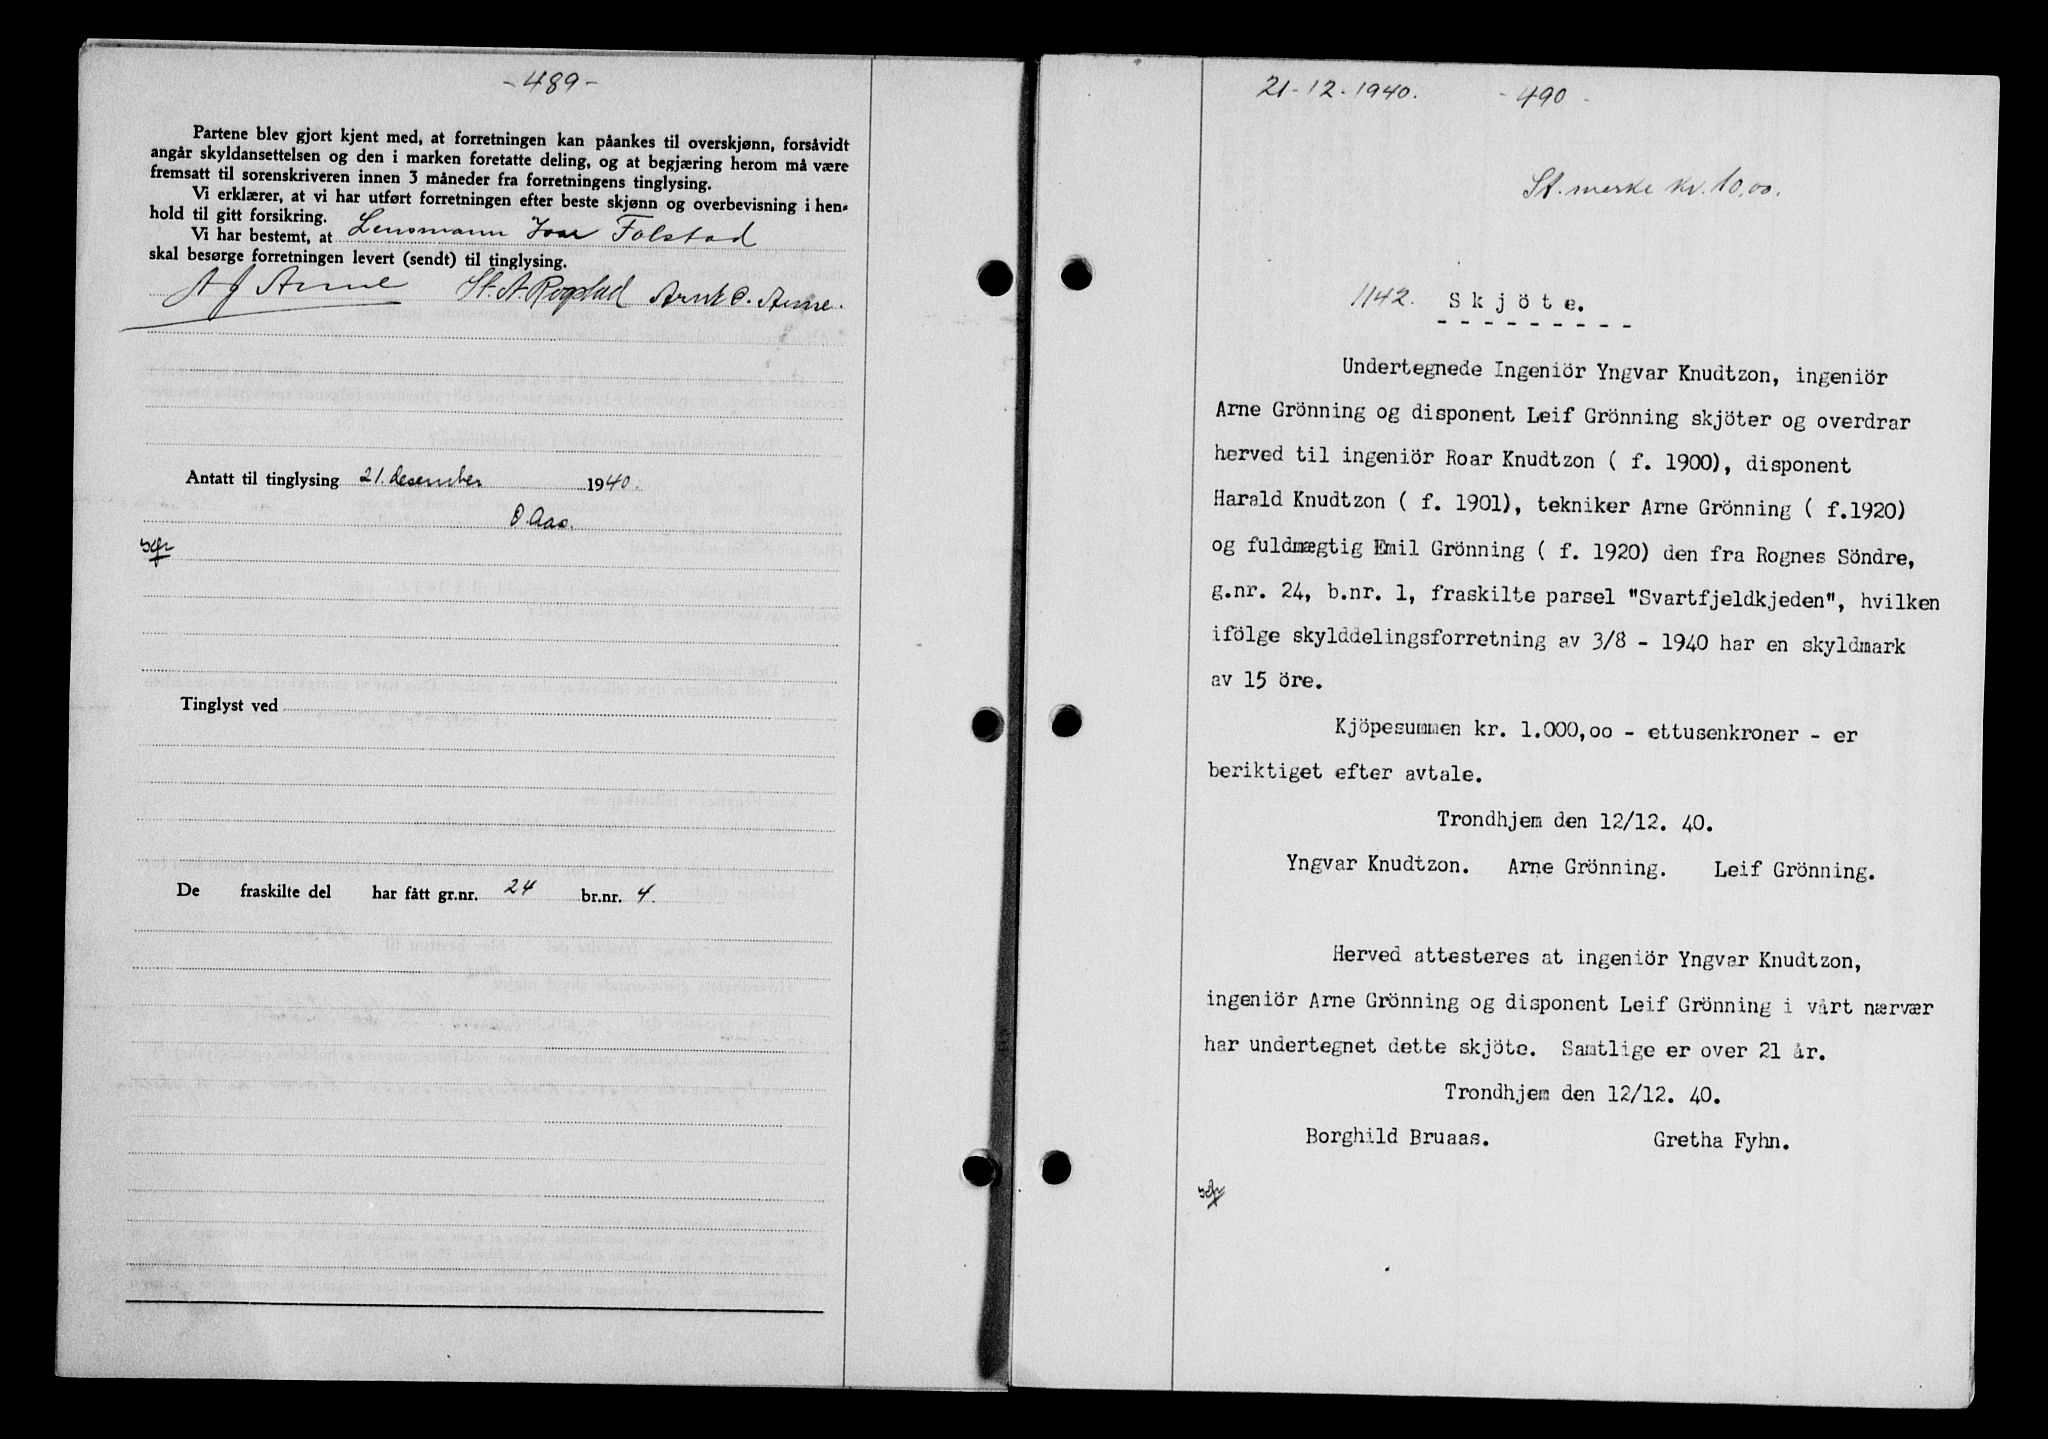 - 489 -
Partene blev gjort kjent med, at forretningen kan påankes til overskjønn, forsåvidt
angår skyldansettelsen og den i marken foretatte deling, og at begjæring herom må være
fremsatt til sorenskriveren innen 3 måneder fra forretningens tinglysing.
Vi erklærer, at vi har utført forretningen efter beste skjønn og overbevisning i hen-
hold til gitt forsikring.
Vi har bestemt, at Lensmann Ivar Folstad
skal besørge forretningen levert (sendt) til tinglysing.
A J Amne St. A. Rogstad Arnt O. Amne.
Antatt til tinglysing 21. desember 1940.
O Aas.
Tinglyst ved
De fraskilte del har fått gr.nr. 24 br.nr. 4.
21-12-1940. - 490 -
St. merke kr. 10,00.
1142. Skjöte.
Undertegnede Ingeniör Yngvar Knudtzon, ingeniör
Arne Grönning og disponent Leif Grönning skjöter og overdrar
herved til ingeniör Roar Knudtzon ( f. 1900), disponent
Harald Knudtzon ( f. 1901), tekniker Arne Grönning ( f.1920)
og fuldmægtig Emil Grönning ( f. 1920) den fra Rognes Söndre,
g.nr. 24, b.nr. 1, fraskilte parsel "Svartfjeldkjeden", hvilken
ifölge skylddelingsforretning av 3/8 - 1940 har en skyldmark
av 15 öre.
Kjöpesummen kr. 1.000,oo - ettusenkroner - er
beriktiget efter avtale.
Trondhjem den 12/12. 40.
Yngvar Knudtzon. Arne Grönning. Leif Grönning.
Herved attesteres at ingeniör Yngvar Knudtzon,
ingeniör Arne Grönning og disponent Leif Grönning i vårt nærvær
har undertegnet dette skjöte. Samtlige er over 21 år.
Trondhjem den 12/12. 40.
Borghild Bruaas. Gretha Fyhn.